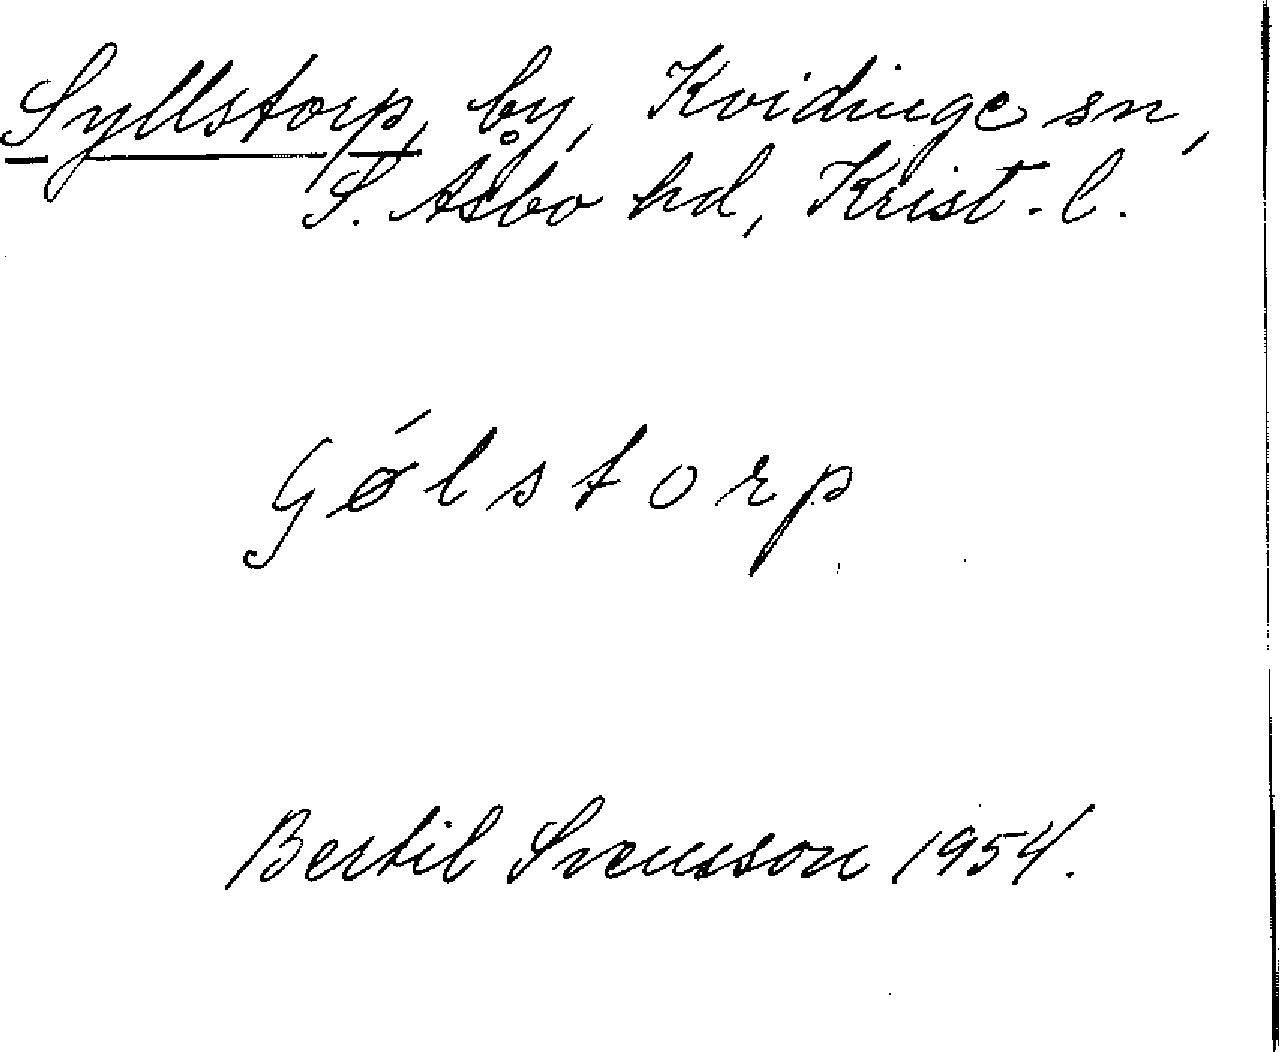 Syllstorp, by, Kvidinge sn,
S. Åsbo hd, Krist. l.
Gǿlstorp
Bertil Svensson 1954.